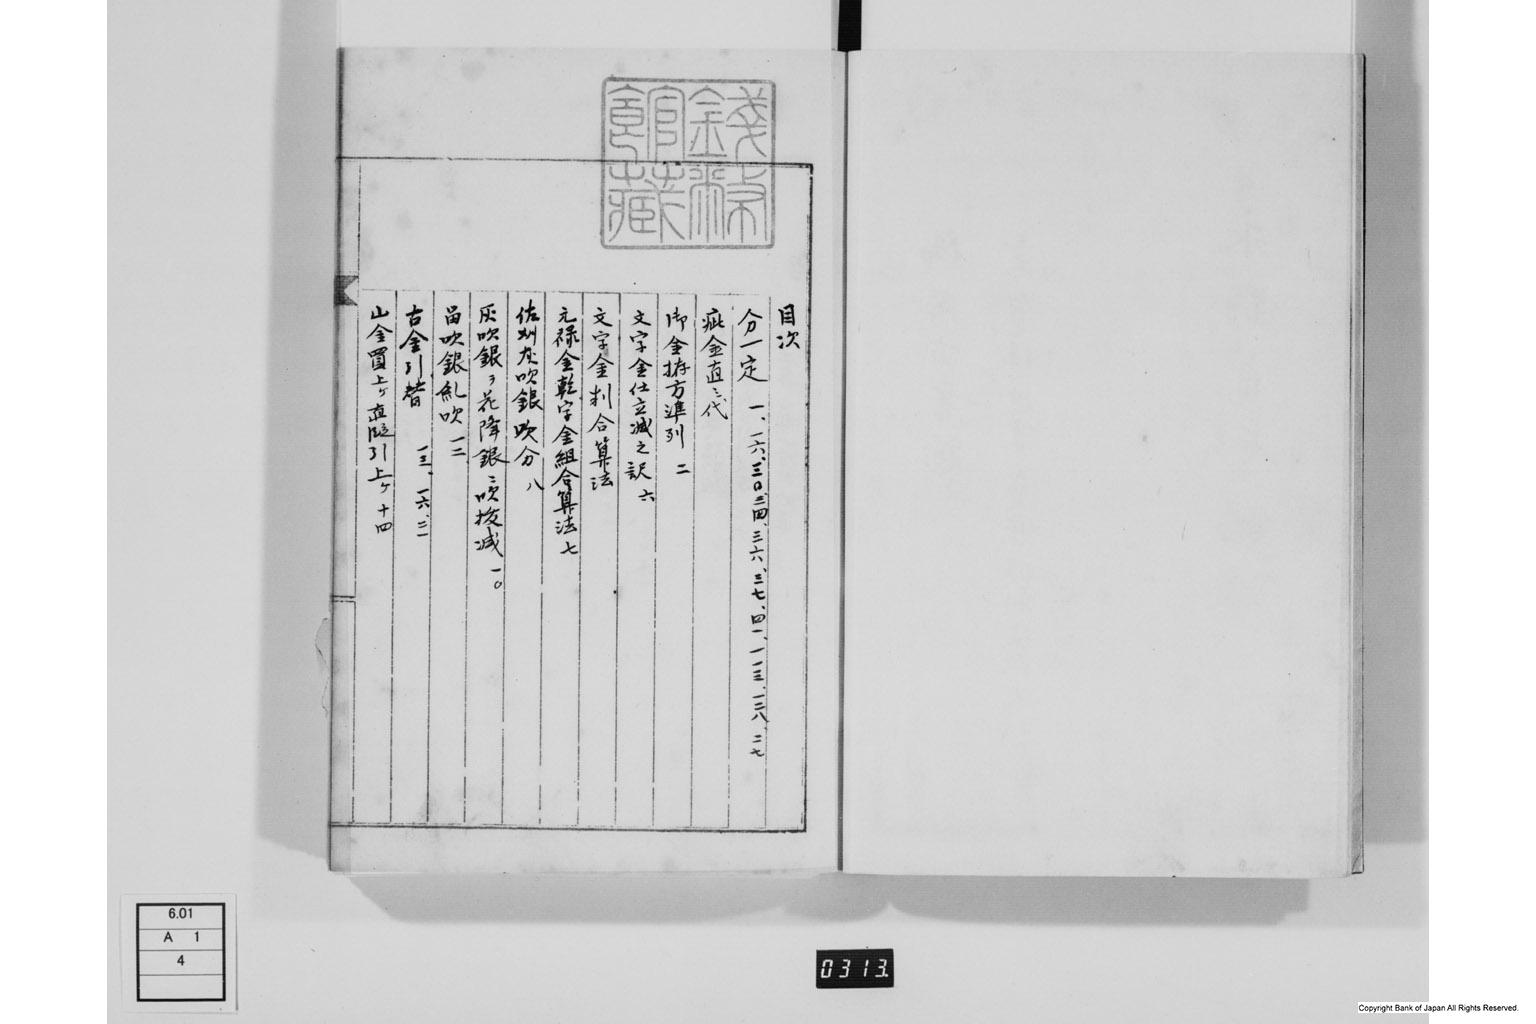 錢幣館藏
目次
分一定 一、一六、三〇、三四、三六、三七、四一、一一三、一二八、二七
疵金直シ代
御金拵方準列 二
文字金仕立減之訳 六
文字金判合算法
元禄金乾字金組合算法 七
佐州灰吹銀吹分 八
灰吹銀ヲ花降銀ニ吹抜減 一〇
畄吹銀糺吹 一二
古金引替 一三、一六、二一
山金買上ケ直段引上ケ 十四
6.01
A 1
4
0313
Copyright Bank of Japan All Rights Reserved.